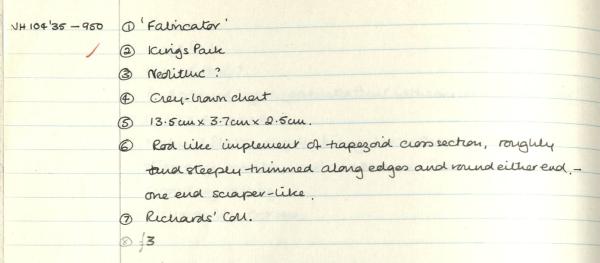 VH 104'35 - 950 ① 'Fabricator'
② Kings Park
③ Neolithic ?
④ Grey-brown chert
⑤ 13.5cm x 3.7cm x 2.5cm.
⑥ Rod like implement of trapezoid cross section, roughly
and steeply trimmed along edges and round either end, -
one end scraper-like.
⑦ Richards' Coll.
⑧ £3